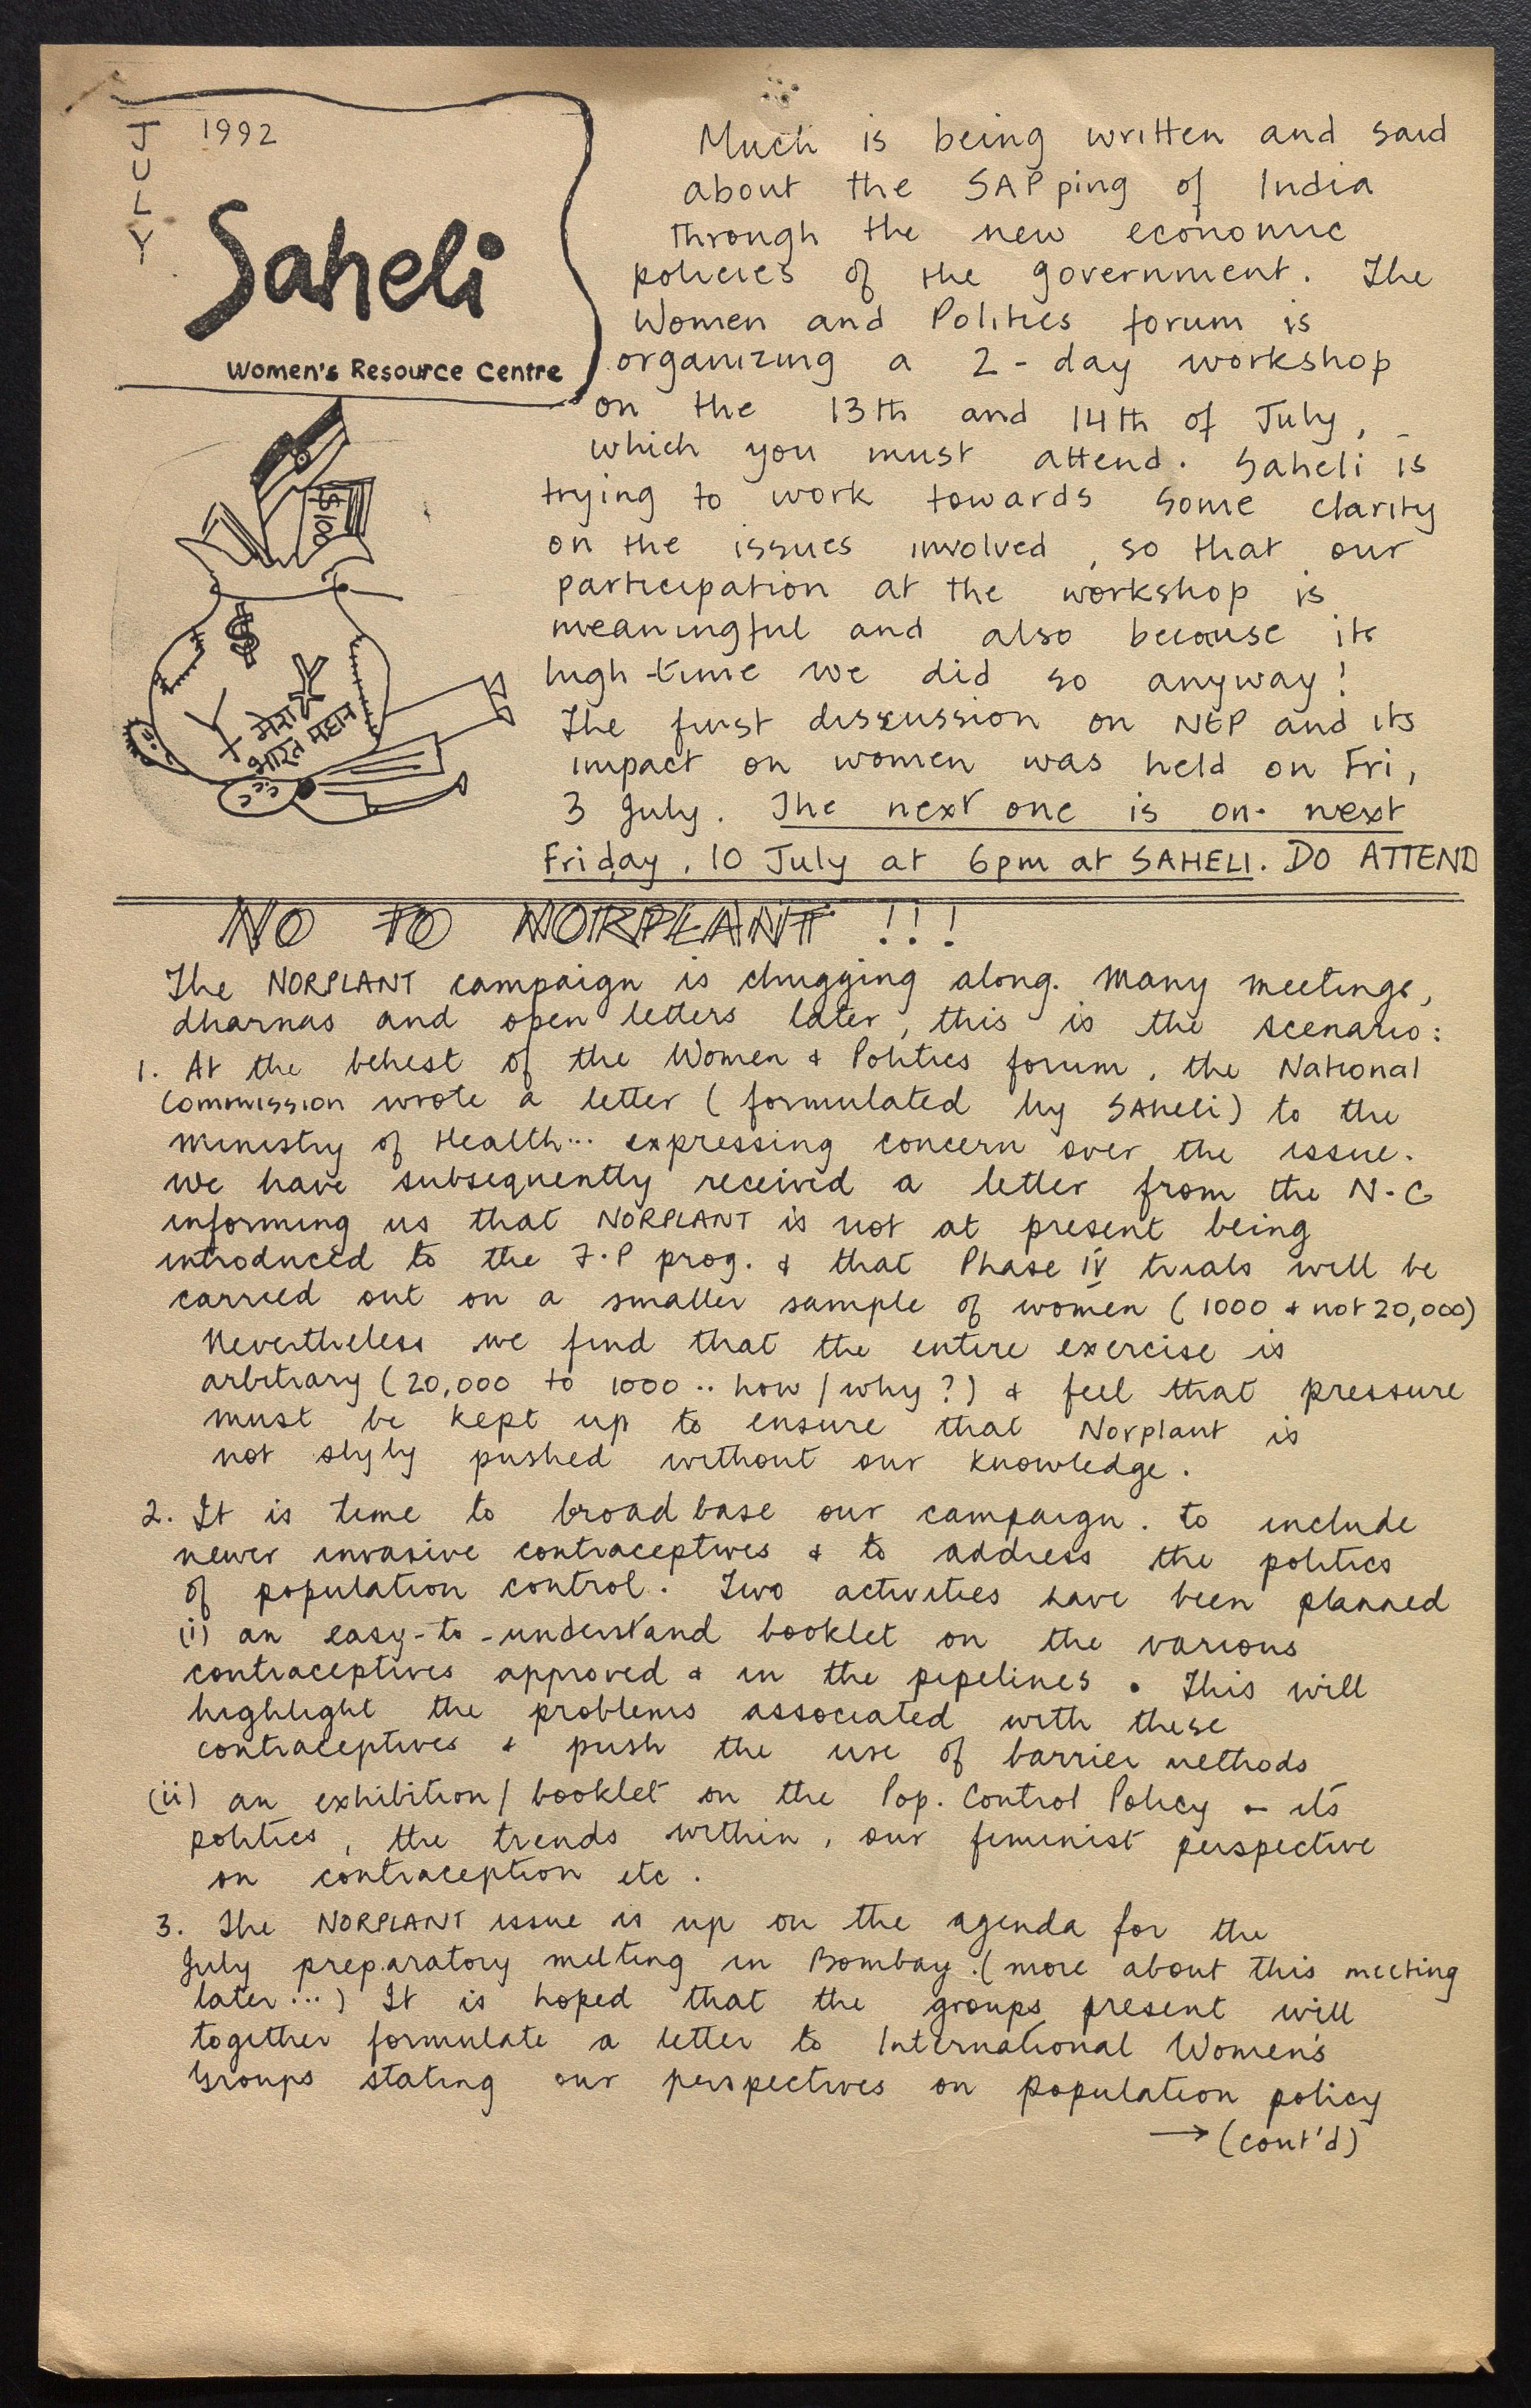 JULY 1992
Saheli
Women's Resource Centre
$100
$
¥
मेरा
भारत महान
Much is being written and said
about the SAPping of India
through the new economic
policies of the government. The
Women and Politics forum is
organizing a 2-day workshop
on the 13th and 14th of July,
which you must attend. Saheli is
trying to work towards some clarity
on the issues involved, so that our
participation at the workshop is
meaningful and also because its
high-time we did so anyway!
The first discussion on NEP and its
impact on women was held on Fri,
3 July. The next one is on next
Friday, 10 July at 6pm at SAHELI. DO ATTEND
NO TO NORPLANT !!!
The NORPLANT campaign is chugging along. Many meetings,
dharnas and open letters later, this is the scenario:
1. At the behest of the Women & Politics forum, the National
Commission wrote a letter (formulated by SAheli) to the
Ministry of Health... expressing concern over the issue.
We have subsequently received a letter from the N.C
informing us that NORPLANT is not at present being
introduced to the F.P prog. & that Phase IV trials will be
carried out on a smaller sample of women (1000 & not 20,000)
Nevertheless we find that the entire exercise is
arbitrary (20,000 to 1000.. how/why?) & feel that pressure
must be kept up to ensure that Norplant is
not slyly pushed without our knowledge.
2. It is time to broad base our campaign. to include
newer invasive contraceptives & to address the politics
of population control. Two activities have been planned
(i) an easy-to-understand booklet on the various
contraceptives approved & in the pipelines. This will
highlight the problems associated with these
contraceptives & push the use of barrier methods
(ii) an exhibition/booklet on the Pop. Control Policy - its
politics, the trends within, our feminist perspective
on contraception etc.
3. The NORPLANT issue is up on the agenda for the
July preparatory meeting in Bombay. (more about this meeting
later...) It is hoped that the groups present will
together formulate a letter to International Women's
Groups stating our perspectives on population policy
→ (cont'd)